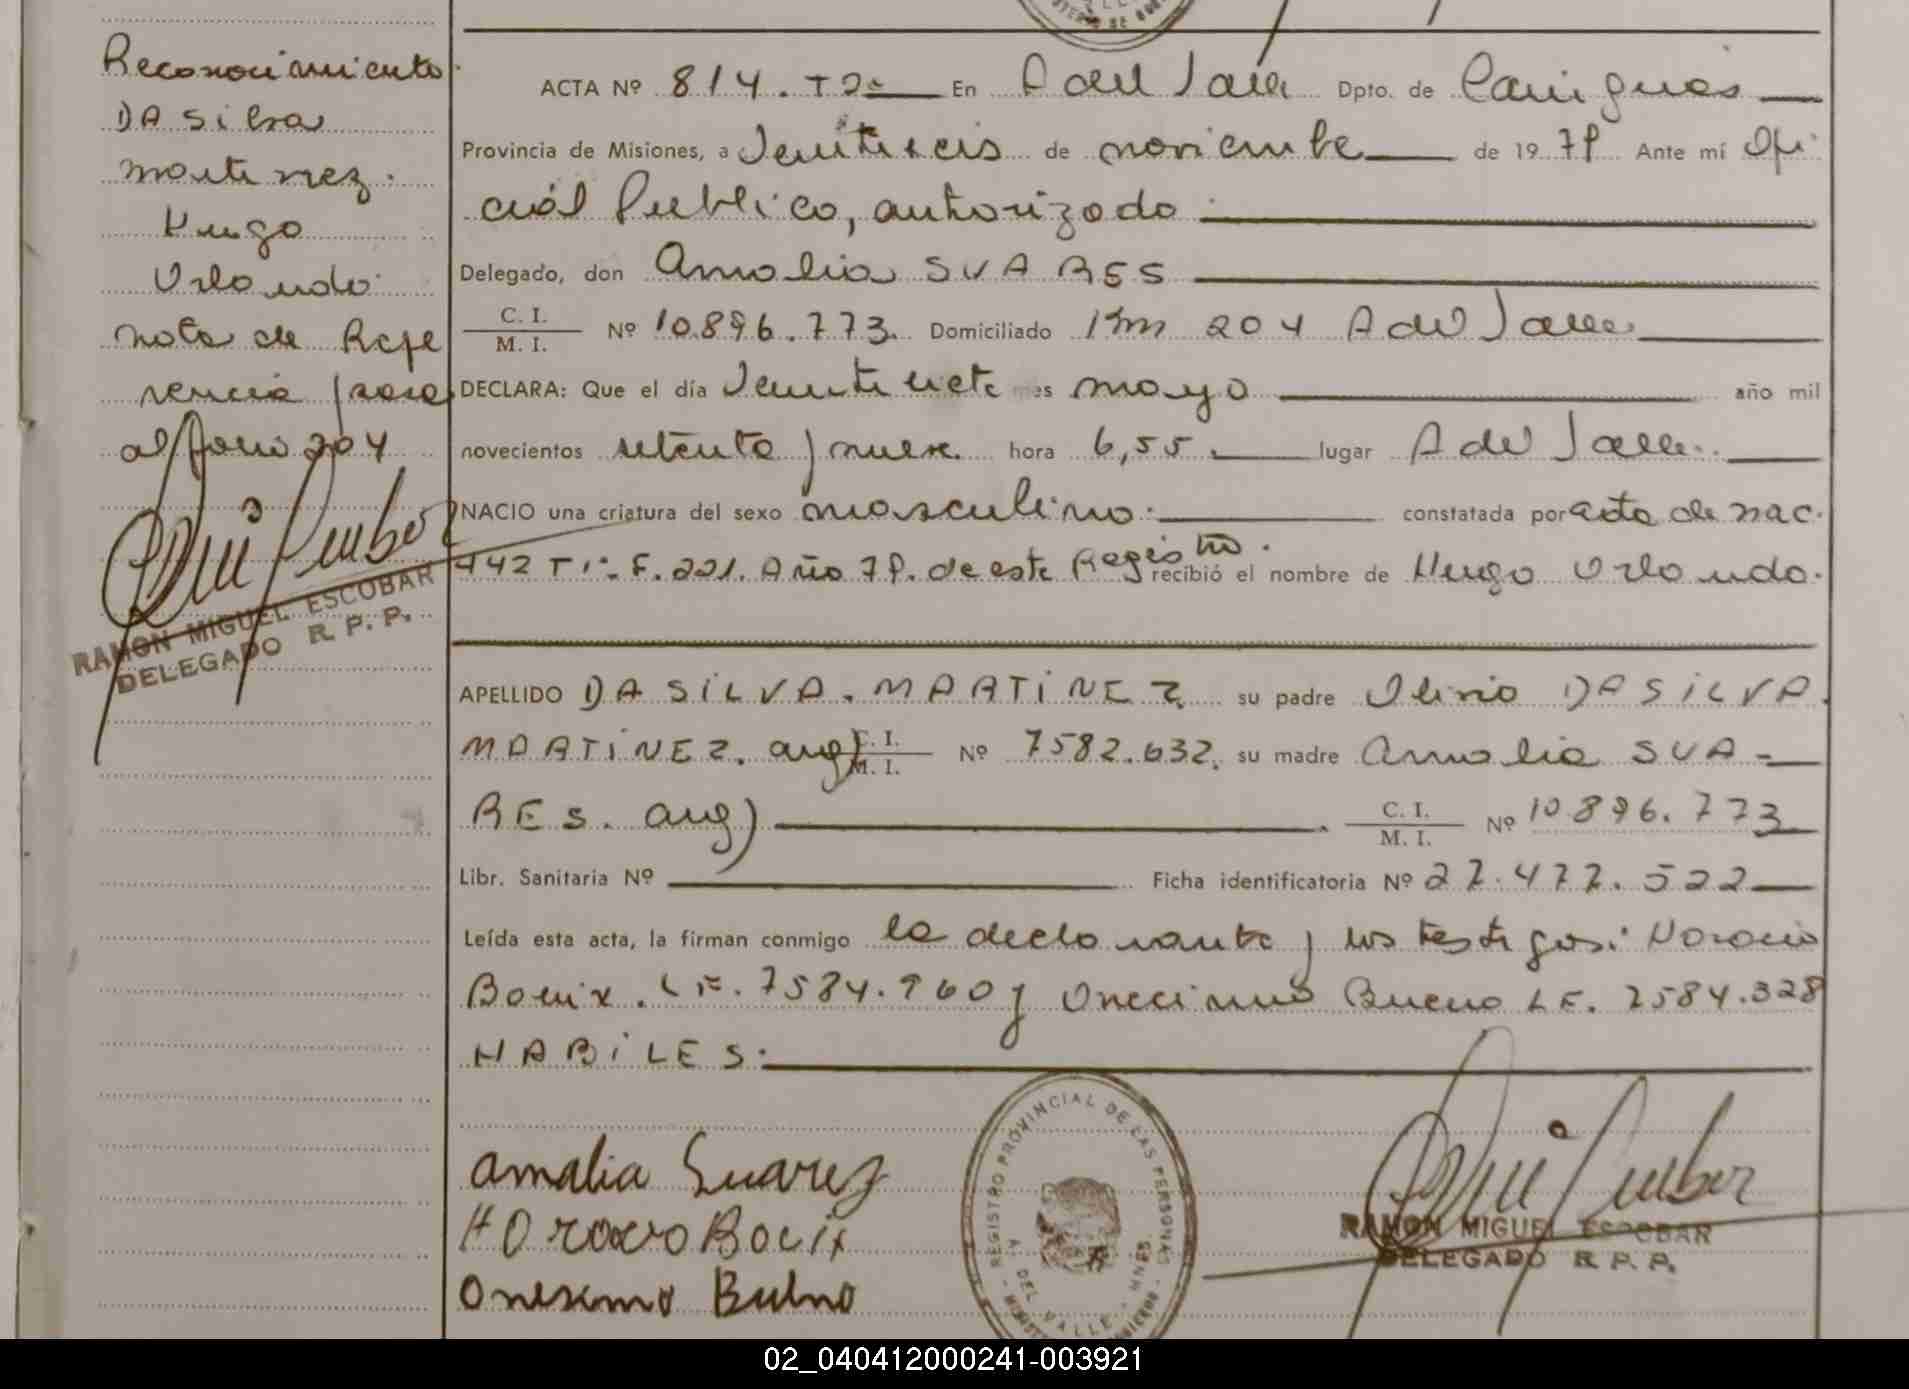 Reconocimiento
DA Silva
Martinez.
Hugo
Orlando
nota de Refe
rencia pasa
al folio 204
RAMON MIGUEL ESCOBAR
DELEGADO R. P. P.
ACTA Nº 814. T2º En A del Valle Dpto. de Cainguas
Provincia de Misiones, a Veintiseis de noviembre de 1979 Ante mí Ofi
cial Publico, autorizado
Delegado, don Amalia SUARES
C. I. / M. I. Nº 10.896.773. Domiciliado Km 204 A del Valle
DECLARA: Que el día Veintisiete mes mayo año mil
novecientos setenta y nueve hora 6,55 lugar A del Valle
NACIO una criatura del sexo masculino. constatada por acta de nac.
442 Tº 1º F. 221. Año 79. de este Registro. recibió el nombre de Hugo Orlando.
APELLIDO DA SILVA. MARTINEZ su padre DA SILVA
MARTINEZ. arg) C. I. / M. I. Nº 7582.632. su madre Amalia SUA-
RES. arg) C. I. / M. I. Nº 10896.773
Libr. Sanitaria Nº Ficha identificatoria Nº 27.477.522
Leída esta acta, la firman conmigo la declarante y los testigos: Horacio
Boeix. LE. 7584.960 y Onecimo Bueno LE. 7584.328
HABILES.
Amalia Suarez
Horacio Boeix
Onesimo Bueno
REGISTRO PROVINCIAL DE LAS PERSONAS
A. DEL VALLE - MNES.
RAMON MIGUEL ESCOBAR
DELEGADO R. P. P.
02_040412000241-003921